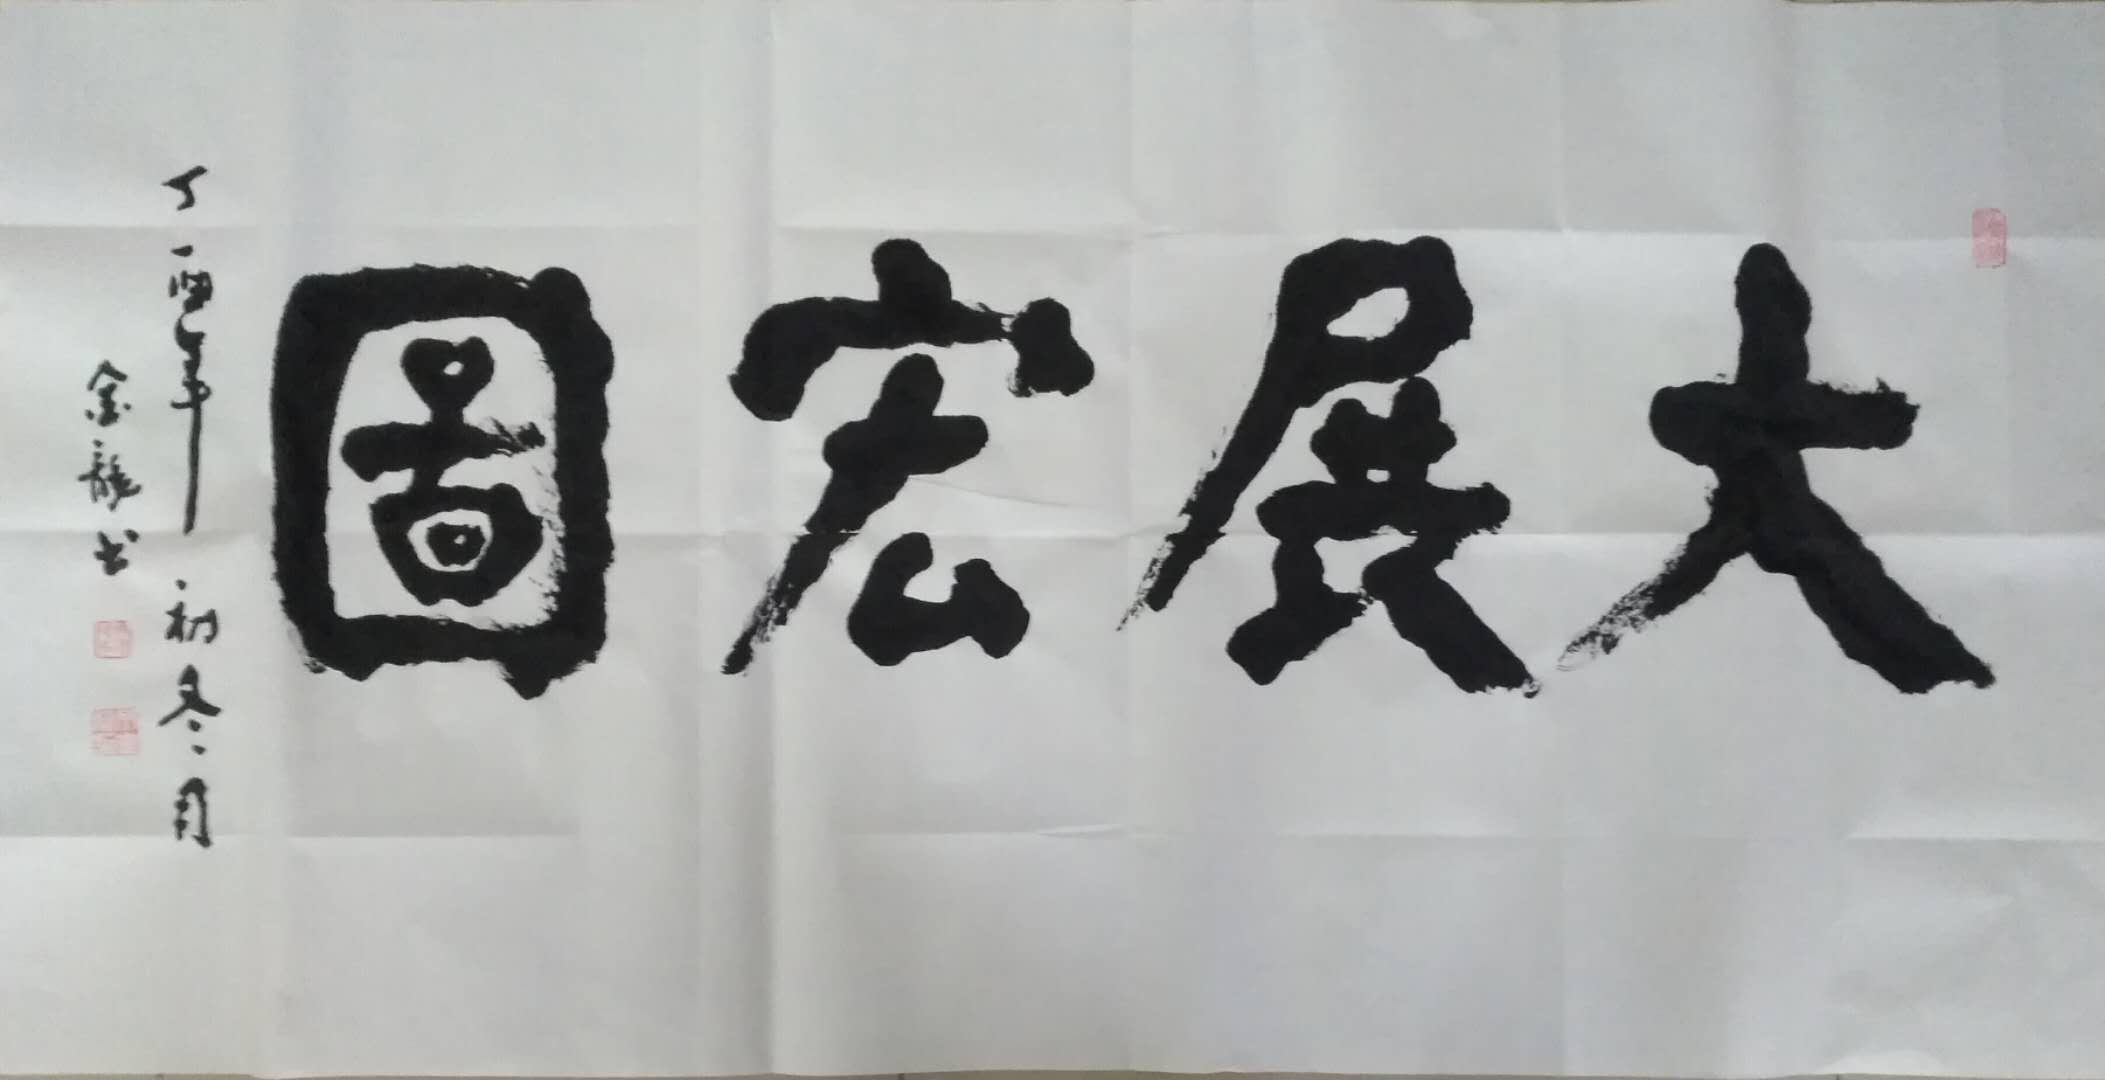 大展宏圖
丁酉年初冬月
金龍书